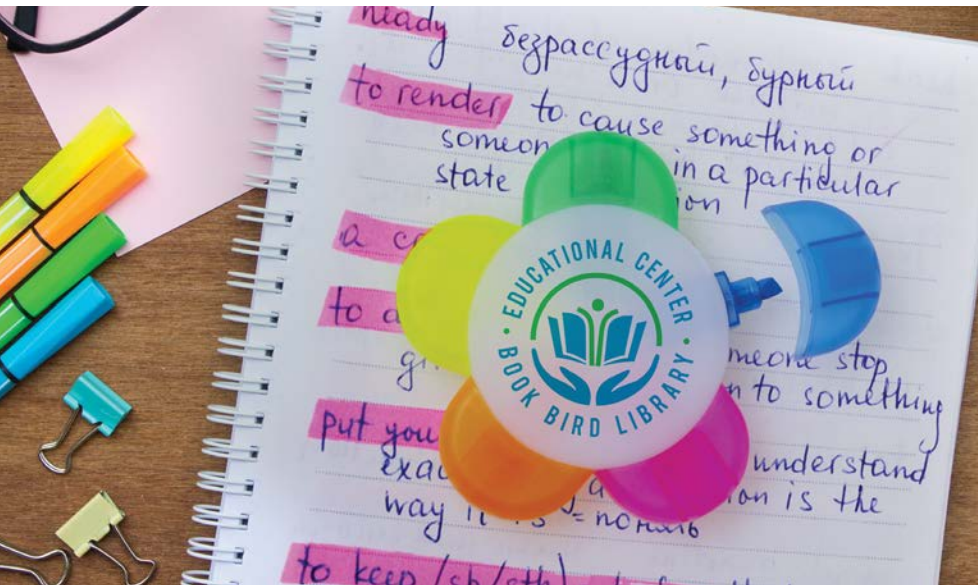 heady безрассудный, бурный
to render to cause something or
someon in a particular
state ion
a c
to a
meone stop
gi n to something
put you understand
exac a ion is the
way it is = понять
to keep (sb/sth)
EDUCATIONAL CENTER
BOOK BIRD LIBRARY